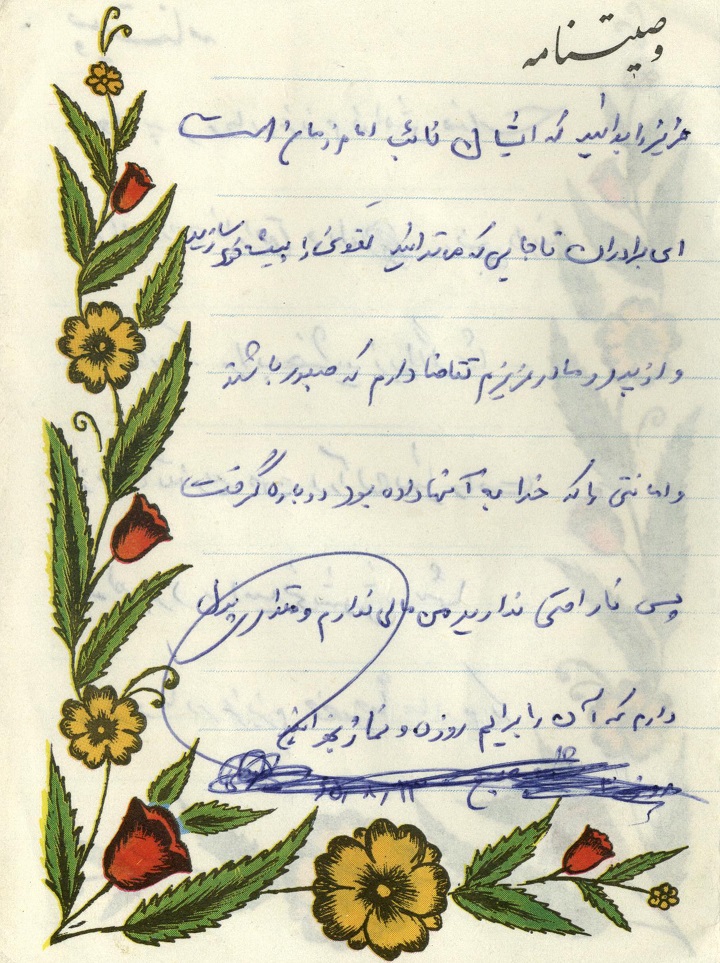 وصیتنامه
عزیز را بدانید که ایشان نائب امام زمان است
ای برادران تا جایی که می‌توانید تقوی را پیشه خود سازید
و از پدر و مادر عزیزم تقاضا دارم که صبور باشند
و امانتی را که خدا به آنها داده بود دوباره گرفت
پس ناراحتی ندارید من مالی ندارم و مقداری پول
دارم که آن را برایم روزه و نماز بخوانید